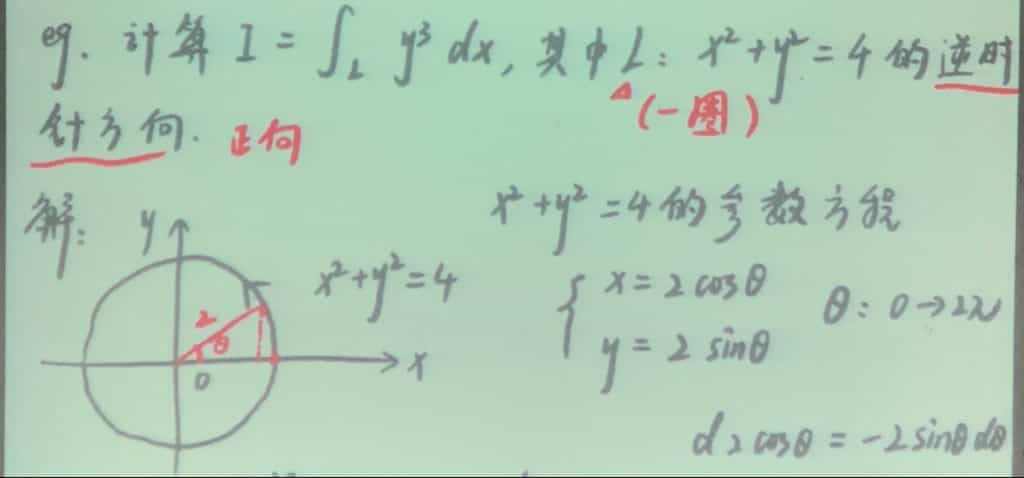 eg. 计算 I = ∫_L y³ dx, 其中 L: x² + y² = 4 的逆时
(一圈)
针方向. 正向
解:
y
x² + y² = 4
2
θ
0
x
x² + y² = 4 的参数方程
{ x = 2 cosθ
y = 2 sinθ
θ: 0 → 2π
d 2 cosθ = -2 sinθ dθ